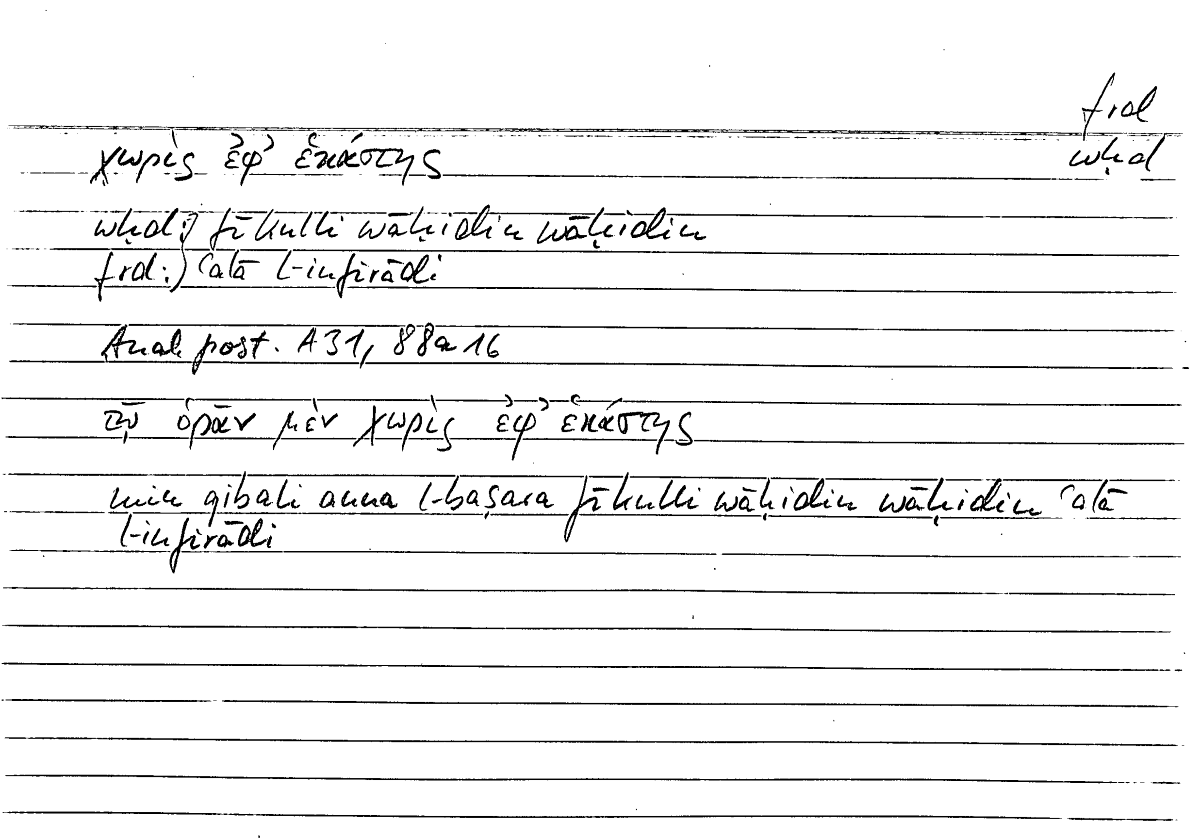 frd
χωρὶς ἐφ' ἑκάστης
wḥd
wḥd:) fī kulli wāḥidin wāḥidin
frd:) ʿalā l-infirādi
Anal. post. A 31, 88a16
τῷ ὁρᾶν μὲν χωρὶς ἐφ' ἑκάστης
min qibali anna l-baṣara fī kulli wāḥidin wāḥidin ʿalā
l-infirādi